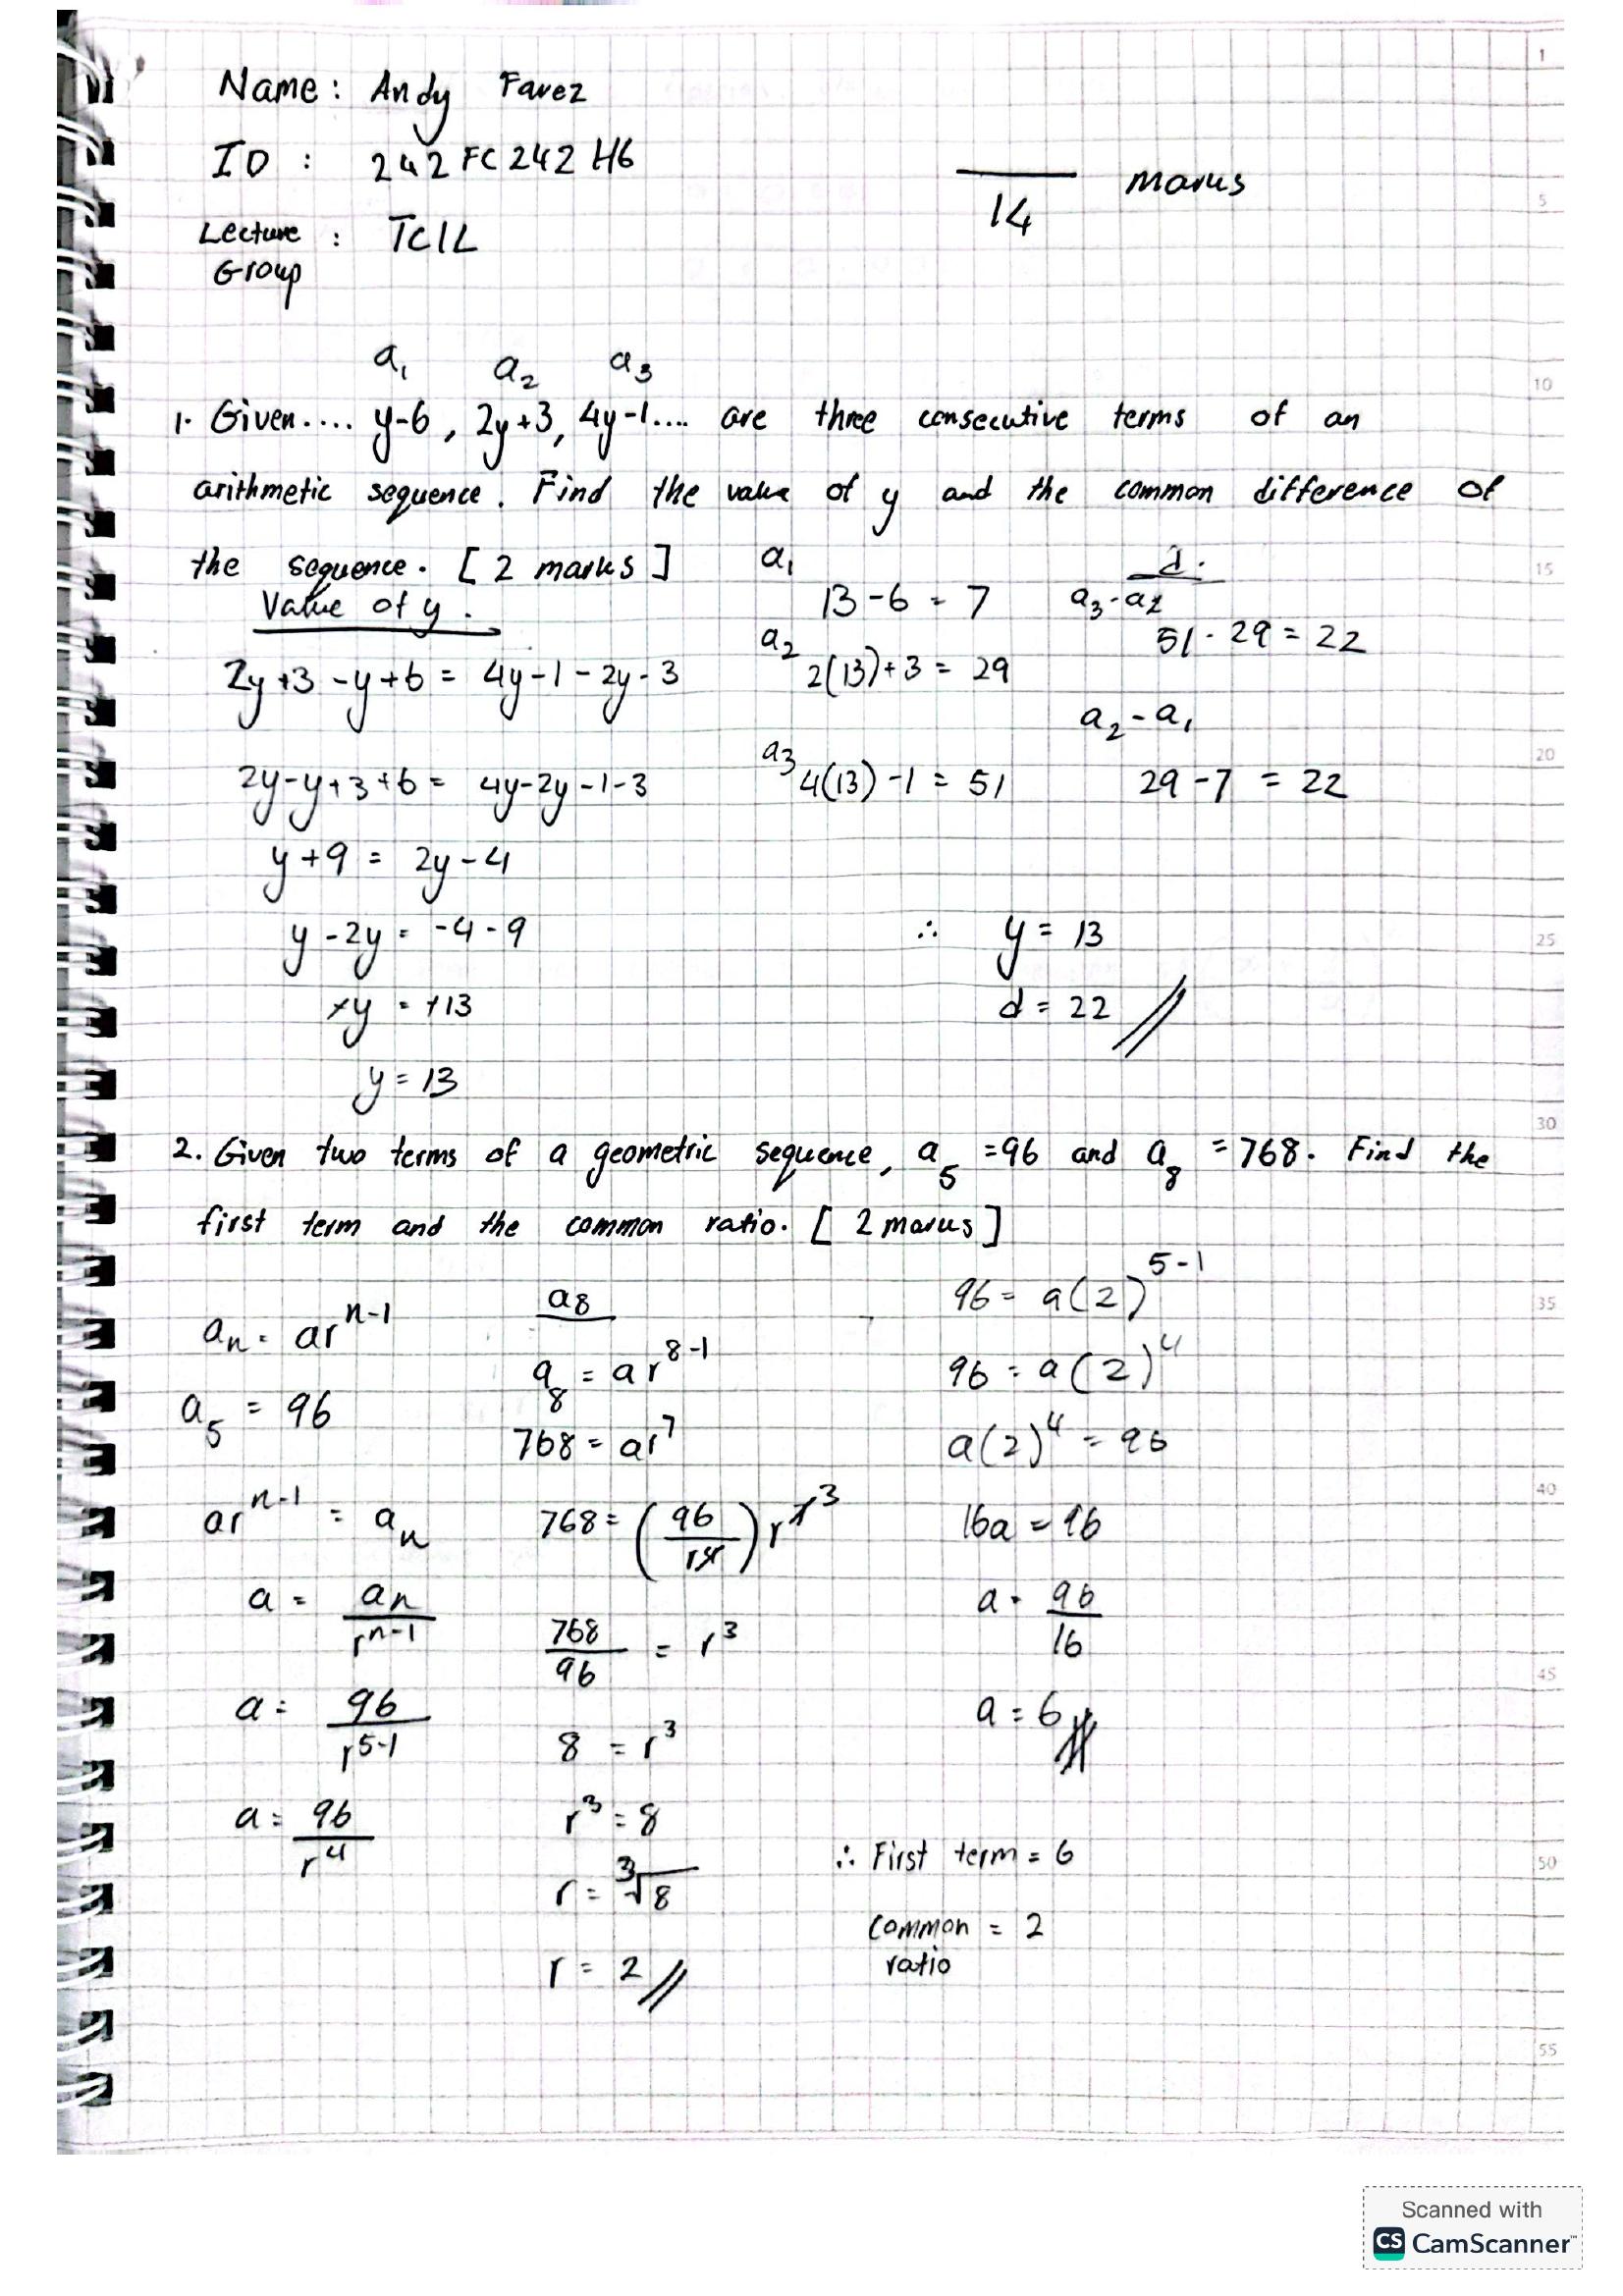 Name : Andy Favez
ID : 242FC242H6
marks
14
Lecture Group : TC1L
a₁ a₂ a₃
1. Given.... y-6 , 2y+3, 4y-1.... are three consecutive terms of an
arithmetic sequence. Find the value of y and the common difference of
the sequence. [ 2 marks ]
Value of y .
2y+3 -y+6 = 4y-1-2y-3
2y-y+3+6 = 4y-2y-1-3
y+9 = 2y-4
y-2y = -4-9
+y = +13
y = 13
a₁
13-6 = 7
a₂
2(13)+3 = 29
a₃
4(13)-1 = 51
d.
a₃-a₂
51-29 = 22
a₂-a₁
29-7 = 22
∴ y = 13
d = 22
2. Given two terms of a geometric sequence, a₅ =96 and a₈ =768. Find the
first term and the common ratio. [ 2 marks ]
aₙ = arⁿ⁻¹
a₅ = 96
arⁿ⁻¹ = aₙ
a = aₙ/rⁿ⁻¹
a = 96/r⁵⁻¹
a = 96/r⁴
a₈
a₈ = ar⁸⁻¹
768 = ar⁷
768 = (96/r⁴) r⁷ ³
768/96 = r³
8 = r³
r³ = 8
r = ³√8
r = 2
96 = a(2)⁵⁻¹
96 = a(2)⁴
a(2)⁴ = 96
16a = 96
a = 96/16
a = 6
∴ First term = 6
Common ratio = 2
1
5
10
15
20
25
30
35
40
45
50
55
Scanned with
CS CamScanner™